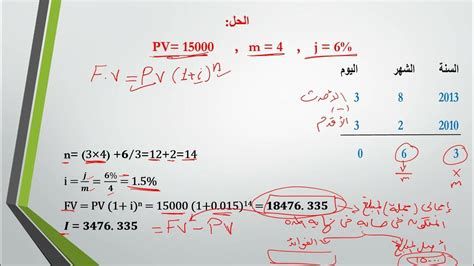 الحل:
PV= 15000 , m = 4 , j = 6%
F.V = PV (1+i)ⁿ
السنة الشهر اليوم
2013 8 3 الأحدث
(-)
2010 2 3 الأقدم
3 6 0
× ÷
m m
n= (3×4) +6/3=12+2=14
i = j/m = 6%/4 = 1.5%
FV = PV (1+ i)ⁿ = 15000 (1+0.015)¹⁴ = 18476. 335
I = 3476. 335 = FV - PV
إجمالي (جملة) مبلغ
في حسابه في نهاية مدة
الفوائد
أصل مبلغ
15000